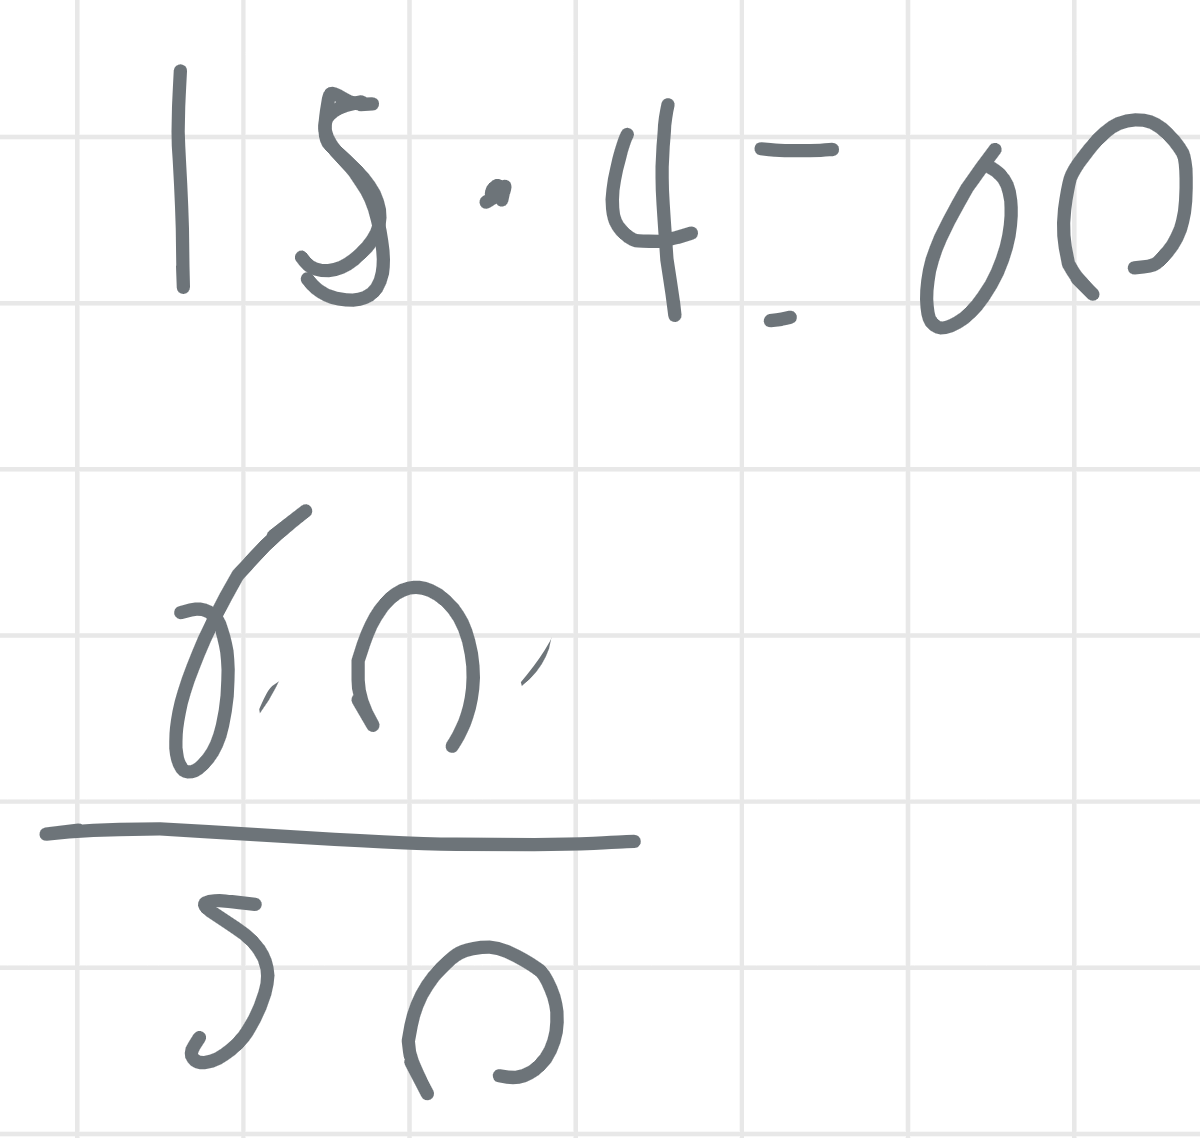 15·4=60
60
50